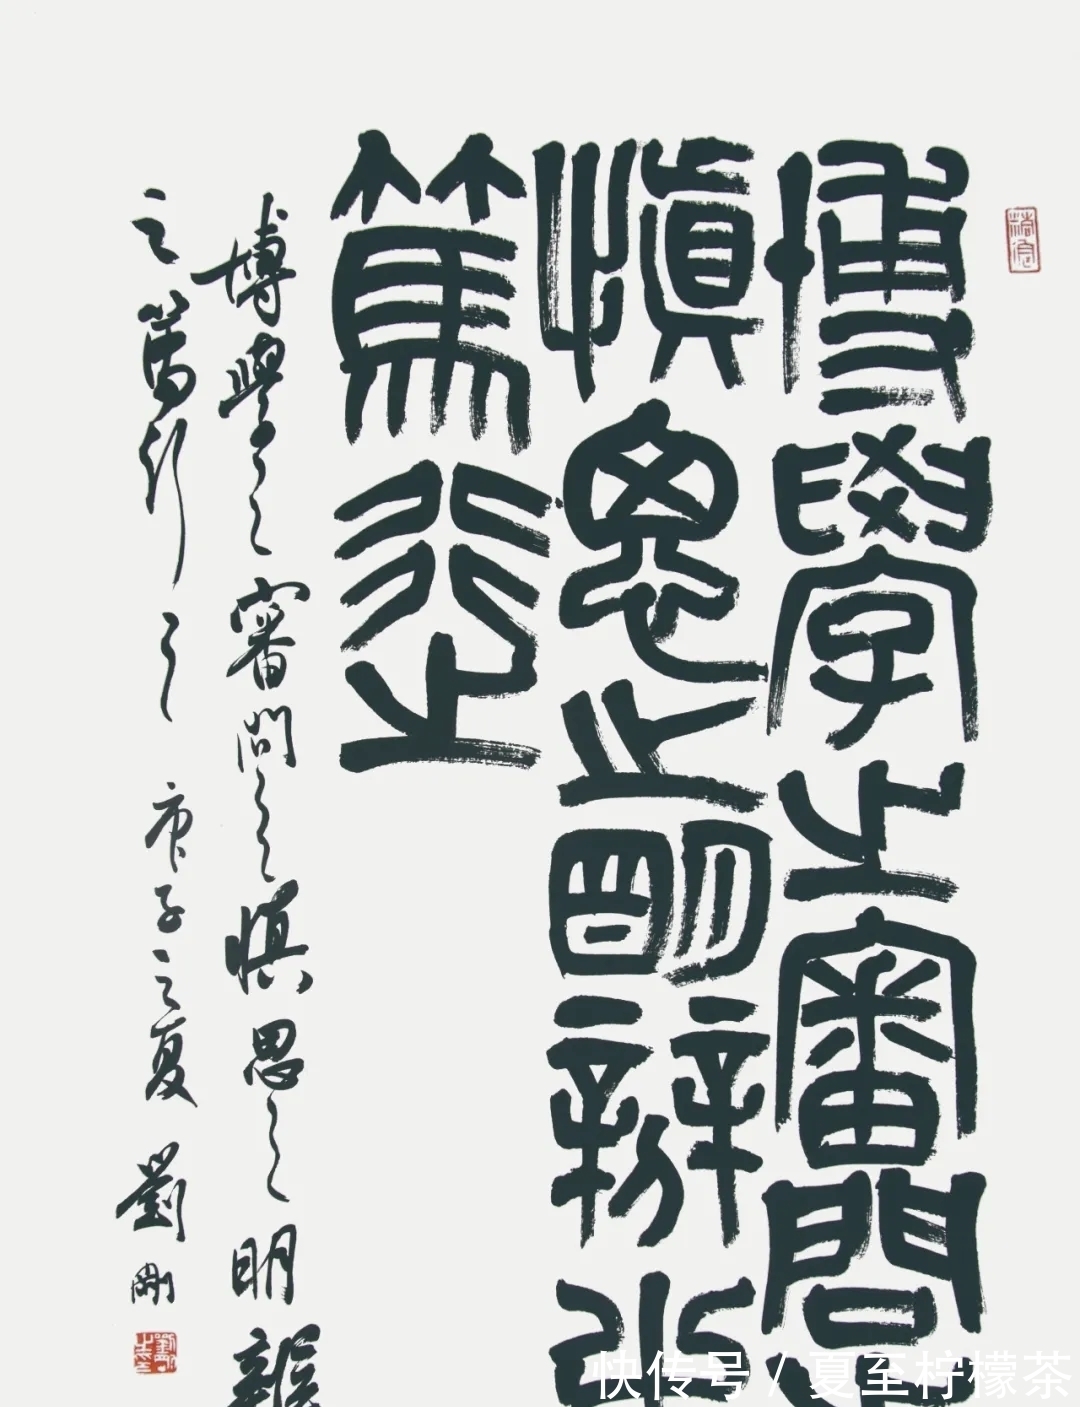 博學之審問之
慎思之明辨之
篤行之
博學之審問之慎思之明辨
之篤行之 庚子之夏 劉剛
快传号 / 夏至柠檬茶